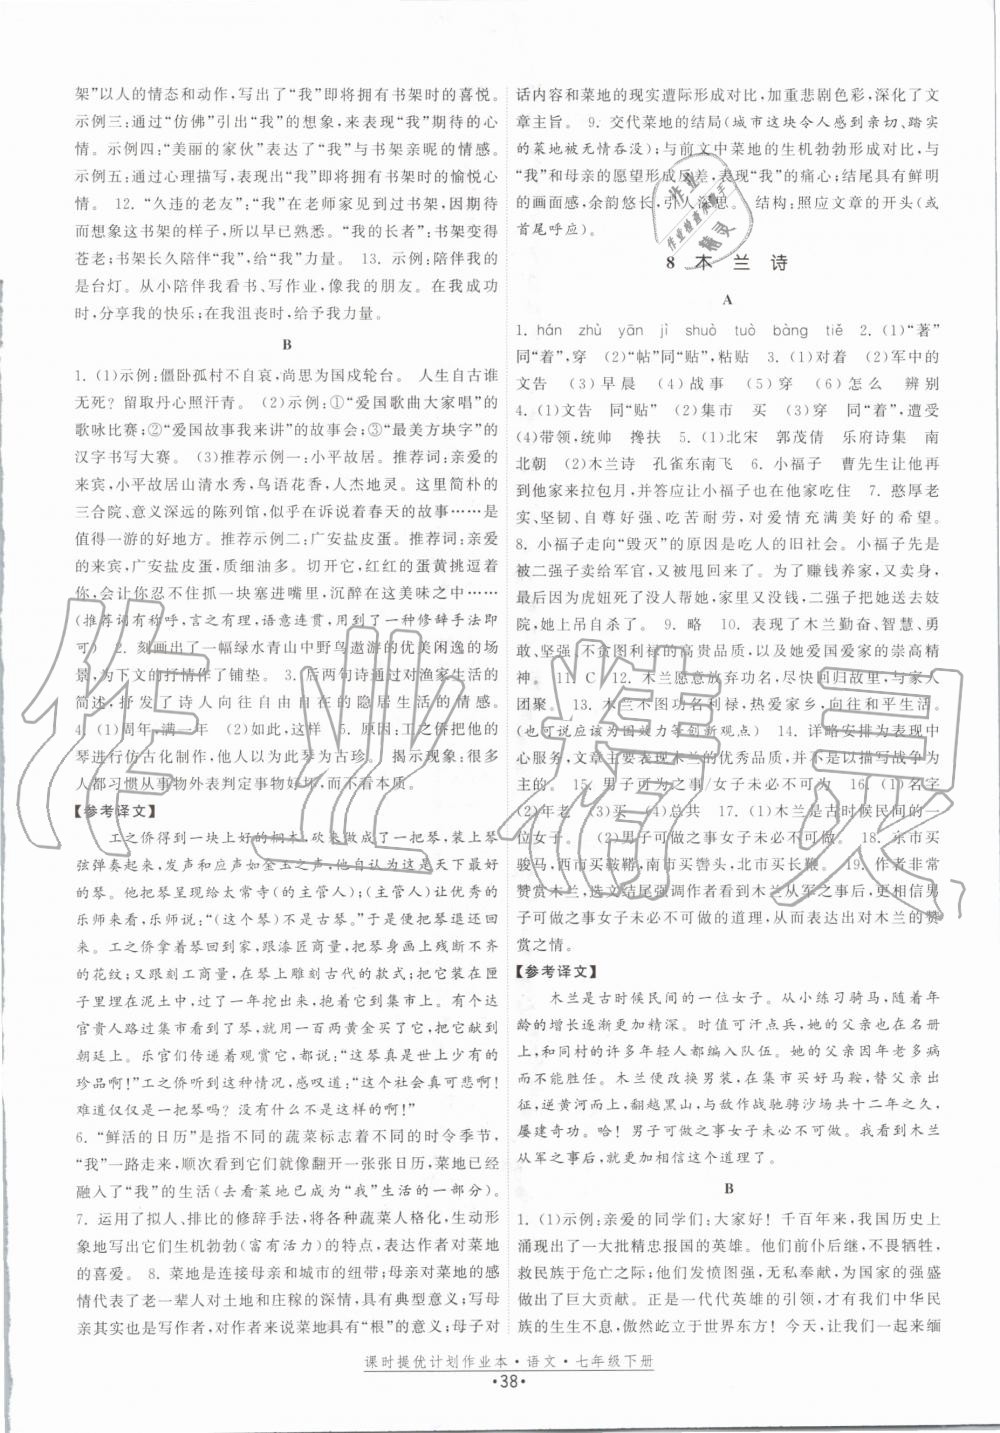 架”以人的情态和动作，写出了“我”即将拥有书架时的喜悦。
示例三：通过“仿佛”引出“我”的想象，来表现“我”期待的心
情。示例四：“美丽的家伙”表达了“我”与书架亲昵的情感。
示例五：通过心理描写，表现“我”即将拥有书架时的愉悦心
情。 12. “久违的老友”；“我”在老师家见到过书架，因期待
而对这书架的样子所以十分熟悉。“我的长者”；书架变得
苍老；书架长久陪伴“我”，给“我”力量。 13. 示例：陪伴我的
是台灯。从小陪伴我看书、写作业，像我的朋友。在我成功
时，分享我的快乐；在我沮丧时，给予我力量。
B
1. (1)示例：僵卧孤村不自哀，尚思为国戍轮台。 人生自古谁
无死？留取丹心照汗青。 (2)示例：①“爱国歌曲大家唱”的
歌咏比赛；②“爱国故事我来讲”的故事会；③“最美方块字”的
汉字书写大赛。 (3)推荐示例一：小平故居。推荐词：亲爱的
来宾，小平故居山清水秀，鸟语花香，人杰地灵。这里简朴的
三合院、意义深远的陈列馆，似乎在诉说着春天的故事……是
值得一游的好地方。推荐示例二：广安盐皮蛋。推荐词：亲爱
的来宾，广安盐皮蛋，质细油多。切开它，红红的蛋黄挑逗着
你，会让你忍不住抓一块塞进嘴里，沉醉在这美味之中……
(推荐词有称呼，言之有理，语意连贯，用到了一种修辞手法即
可) 2. 刻画出了一幅绿水青山中野鸟遨游的优美闲逸的场
景，为下文的抒情作了铺垫。 3. 后两句诗通过对渔家生活的
简述，抒发了诗人向往自由自在的隐居生活的情感。
4. (1)周年，满一年 (2)如此，这样 5. 原因：工之侨把他的
琴进行仿古化制作，他人以为此琴为古珍。 揭示现象：很多
人都习惯从事物外表判定事物好坏，而不看本质。
【参考译文】
工之侨得到一块上好的桐木，砍来做成了一把琴，装上琴
弦弹奏起来，发声和应声如金玉之声，他自认为这是天下最好
的琴。他把琴呈现给太常寺(的主管人)；(主管人)让优秀的
乐师来看，乐师说：“(这个琴)不是古琴。”于是便把琴退还回
来。工之侨拿着琴回到家，跟漆匠商量，把琴漆成残断不全
的花纹；又跟刻工商量，在琴上雕刻古代的款式；把它装在匣
子里并埋在泥土中，过了一年挖出来，抱着它到集市上。有个大
官贵人路过集市看到了琴，就用一百两黄金买了它，把它献到
朝廷上。乐官们传递着观赏它，都说：“这琴真是世上少有的
珍品啊！”工之侨听到这种情况，感叹道：“这个社会真可悲啊！
难道仅仅是一把琴吗？没有什么不是这样的啊！”
6. “鲜活的日历”是指不同的蔬菜标志着不同的时令季节，
“我”一路走来，顺次看就像翻开一张张日历，菜地已经
融入了“我”的生活(去看菜地已成为“我”生活的一部分)。
7. 运用了拟人、排比的修辞手法，将各种蔬菜人格化，生动形
象地写出它们生机勃勃(富有活力)的特点，表达作者对菜地
的喜爱。 8. 菜地是连接母亲和城市的纽带；母亲对菜地的感
情代表了老一辈人对土地和庄稼的深情，具有典型意义；写母
亲其实也是写作者，对作者来说菜地具有“根”的意义；母子对
话内容和菜地的现实遭际形成对比，加重悲剧色彩，深化了文
章主旨。 9. 交代菜地的结局(城市这块令人感到亲切、踏实
的菜地被无情吞没)；与前文中菜地的生机勃勃形成对比，与
“我”和母亲的愿望形成反差，表现“我”的痛心；结尾具有鲜明
的画面感，余韵悠长，引人深思。 结构：照应文章的开头(或
首尾呼应)。
8 木兰诗
A
1. hán zhù yān jì shuò tuò bàng tiě 2. (1)“著”
同“着”，穿 (2)“帖”同“贴”，粘贴 3. (1)兼 (2)军中的
文告 (3)早晨 (4)战事 (5)穿 (6)怎么 辨别
4. (1)文告 同“贴” (2)集市 买 (3)穿 同“着”，遭受
(4)带领，统帅 搀扶 5. (1)北宋 郭茂倩 乐府诗集 南
北朝 (2)木兰诗 孔雀东南飞 6. 小福子 曹先生让他再
到他家来拉包月，并答应让小福子可以在他家吃住 7. 憨厚老
实、坚韧、自尊好强、吃苦耐劳，对爱情充满美好的希望。
8. 小福子走向“毁灭”的原因是吃人的旧社会。小福子先是
被二强子卖给军官，又被甩回来了。为了赚钱养家，又卖身。
最后因为虎妞死了没了住处，家里又没钱，二强子把她送去妓
院，她上吊自杀了。 9. 略 10. 表现了木兰勤奋、智慧、勇
敢、坚强、不贪图利禄的高贵品质，以及她爱国爱家的崇高精
神。 11. C 12. 木兰愿意放弃功名，尽快回归故里，与家人
团聚。 13. 木兰不图功名利禄，热爱家乡，向往和平生活。
(也可说应该为国效力等创新观点) 14. 详略安排为表现中
心服务，文章主要表现木兰的优秀品质，而不是以描写战争为
主。 15. 男子可为之事女子未必不可为 16. (1)名字
(2)年老 (3)买 (4)总共 17. (1)木兰是古时候民间的一
位女子。 (2)男子可做之事女子未必不可做。 18. 东市买
骏马，西市买鞍鞯，南市买辔头，北市买长鞭。 19. 作者非常
赞赏木兰，选文结尾强调作者看到木兰从军之事后，更相信男
子可做之事女子未必不可做的道理，从而表达出对木兰的赞
赏之情。
【参考译文】
木兰是古时候民间的一位女子。从小练习骑马，随着年
龄的增长逐渐更加精深。时值可汗点兵，她的父亲也在名册
上，和同村的许多年轻人都编入队伍。她的父亲因年老多病
而不能胜任。木兰便改换男装，在集市买好马鞍，替父亲出
征，逆黄河而上，翻越黑山，与战友骑马驰骋沙场共十二年之久，
屡建奇功。哈！男子可做之事女子未必不可做，我看到木兰
从军之事后，更加相信这个道理了。
B
1. (1)示例：亲爱的同学们：大家好！千百年来，我国历史上
涌现出了一大批精忠报国的英雄。他们前仆后继，不畏牺牲，
救民族于危亡之际；他们发愤图强，无私奉献，为国家的强盛
做出了巨大贡献。正是一代代英雄的引领，才有中华民
族的生生不息，傲然屹立于世界东方！今天，让我们一起来缅
课时提优计划作业本·语文·七年级下册
·38·